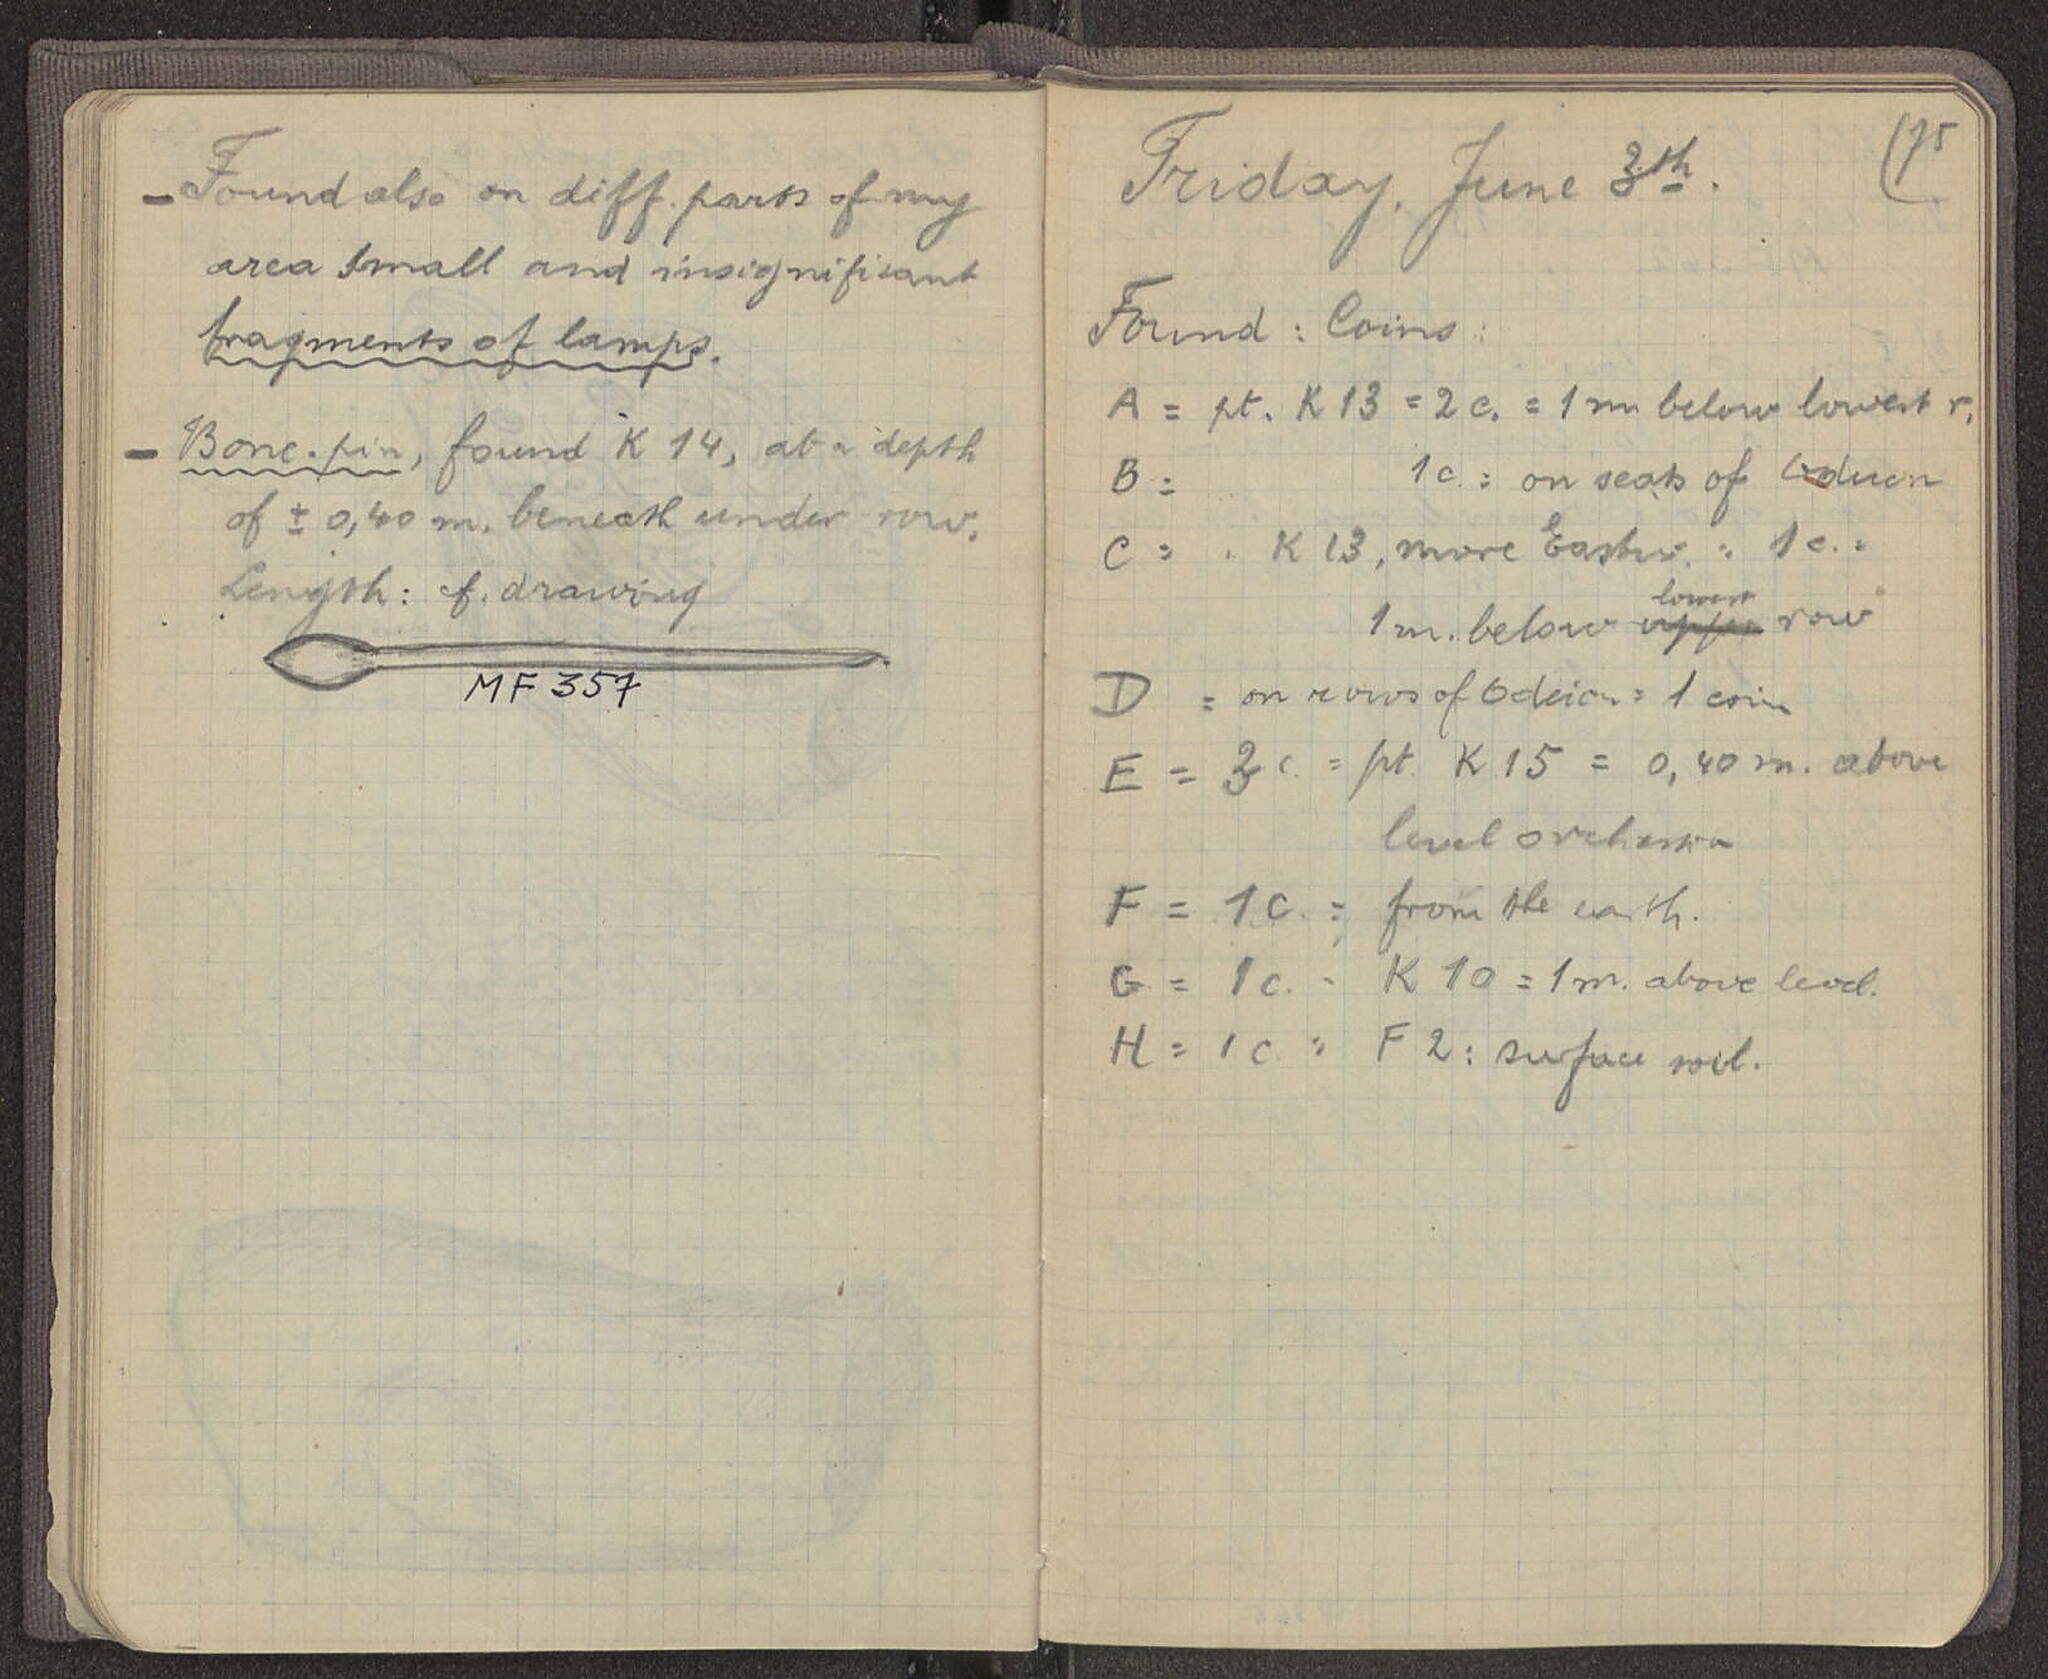 – Found also on diff. parts of my
area small and insignificant
fragments of lamps.
– Bone-pin, found K 14, at a depth
of ± 0,40 m. beneath under row.
Length: cf. drawing
MF 357
Friday, June 3th.
Found : Coins :
A = pt. K 13 = 2 c. = 1 m below lowest r.
B = 1 c. = on seats of Odeion
C = . K 13, more Eastw. = 1 c. =
lowest
1 m. below upper row
D = on rows of Odeion = 1 coin
E = 3 c. = pt. K 15 = 0,40 m. above
level orchestra
F = 1 c. = from the earth.
G = 1 c. = K 10 = 1 m. above level.
H = 1 c. = F 2 : surface soil.